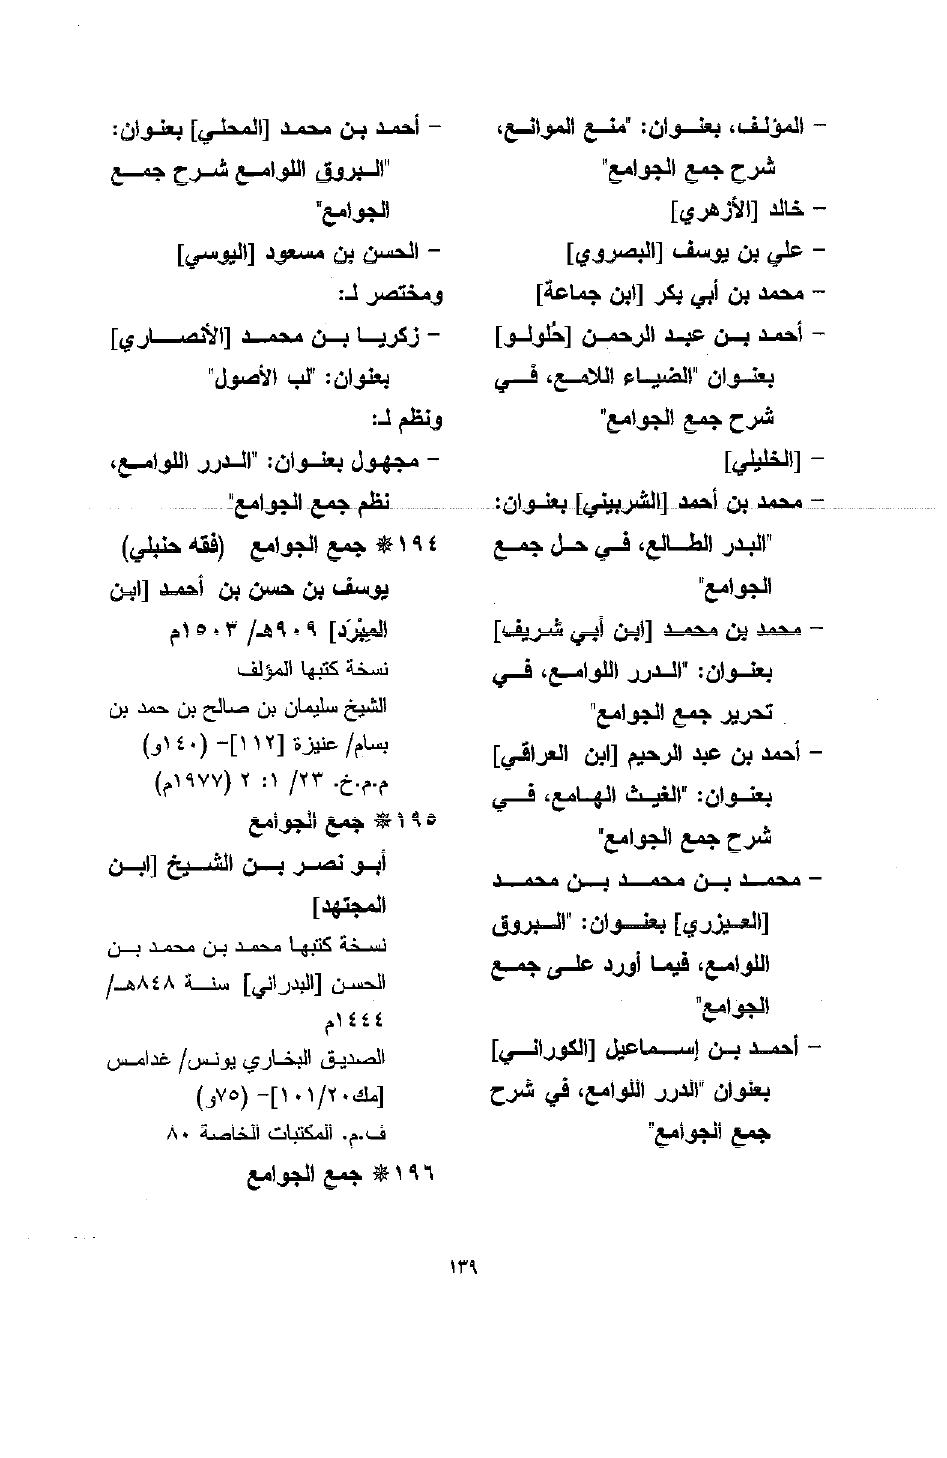 – المؤلف، بعنوان: "منع الموانع،
شرح جمع الجوامع"
– خالد [الأزهري]
– علي بن يوسف [البصروي]
– محمد بن أبي بكر [ابن جماعة]
– أحمد بن عبد الرحمن [حُلولو]
بعنوان "الضياء اللامع، في
شرح جمع الجوامع"
– [الخليلي]
– محمد بن أحمد [الشربيني] بعنوان:
"البدر الطالع، في حل جمع
الجوامع"
– محمد بن محمد [ابن أبي شريف]
بعنوان: "الدرر اللوامع، في
تحرير جمع الجوامع"
– أحمد بن عبد الرحيم [ابن العراقي]
بعنوان: "الغيث الهامع، في
شرح جمع الجوامع"
– محمد بن محمد بن محمد
[العيزري] بعنوان: "البروق
اللوامع، فيما أورد على جمع
الجوامع"
– أحمد بن إسماعيل [الكوراني]
بعنوان "الدرر اللوامع، في شرح
جمع الجوامع"
– أحمد بن محمد [المحلي] بعنوان:
"البروق اللوامع شرح جمع
الجوامع"
– الحسن بن مسعود [اليوسي]
ومختصر لـ:
– زكريا بن محمد [الأنصاري]
بعنوان: "لب الأصول"
ونظم لـ:
– مجهول بعنوان: "الدرر اللوامع،
نظم جمع الجوامع"
١٩٤ * جمع الجوامع (فقه حنبلي)
يوسف بن حسن بن أحمد [ابن
المِبْرَد] ٩٠٩هـ/ ١٥٠٣م
نسخة كتبها المؤلف
الشيخ سليمان بن صالح بن حمد بن
بسام/ عنيزة [١١٢]– (١٤٠و)
م.م.خ. ٢٣/ ١: ٢ (١٩٧٧م)
١٩٥ * جمع الجوامع
أبو نصر بن الشيخ [ابن
المجتهد]
نسخة كتبها محمد بن محمد بن
الحسن [البدراني] سنة ٨٤٨هـ/
١٤٤٤م
الصديق البخاري يونس/ غدامس
[مك١٠١/٢٠]– (٧٥و)
ف.م. المكتبات الخاصة ٨٠
١٩٦ * جمع الجوامع
١٣٩